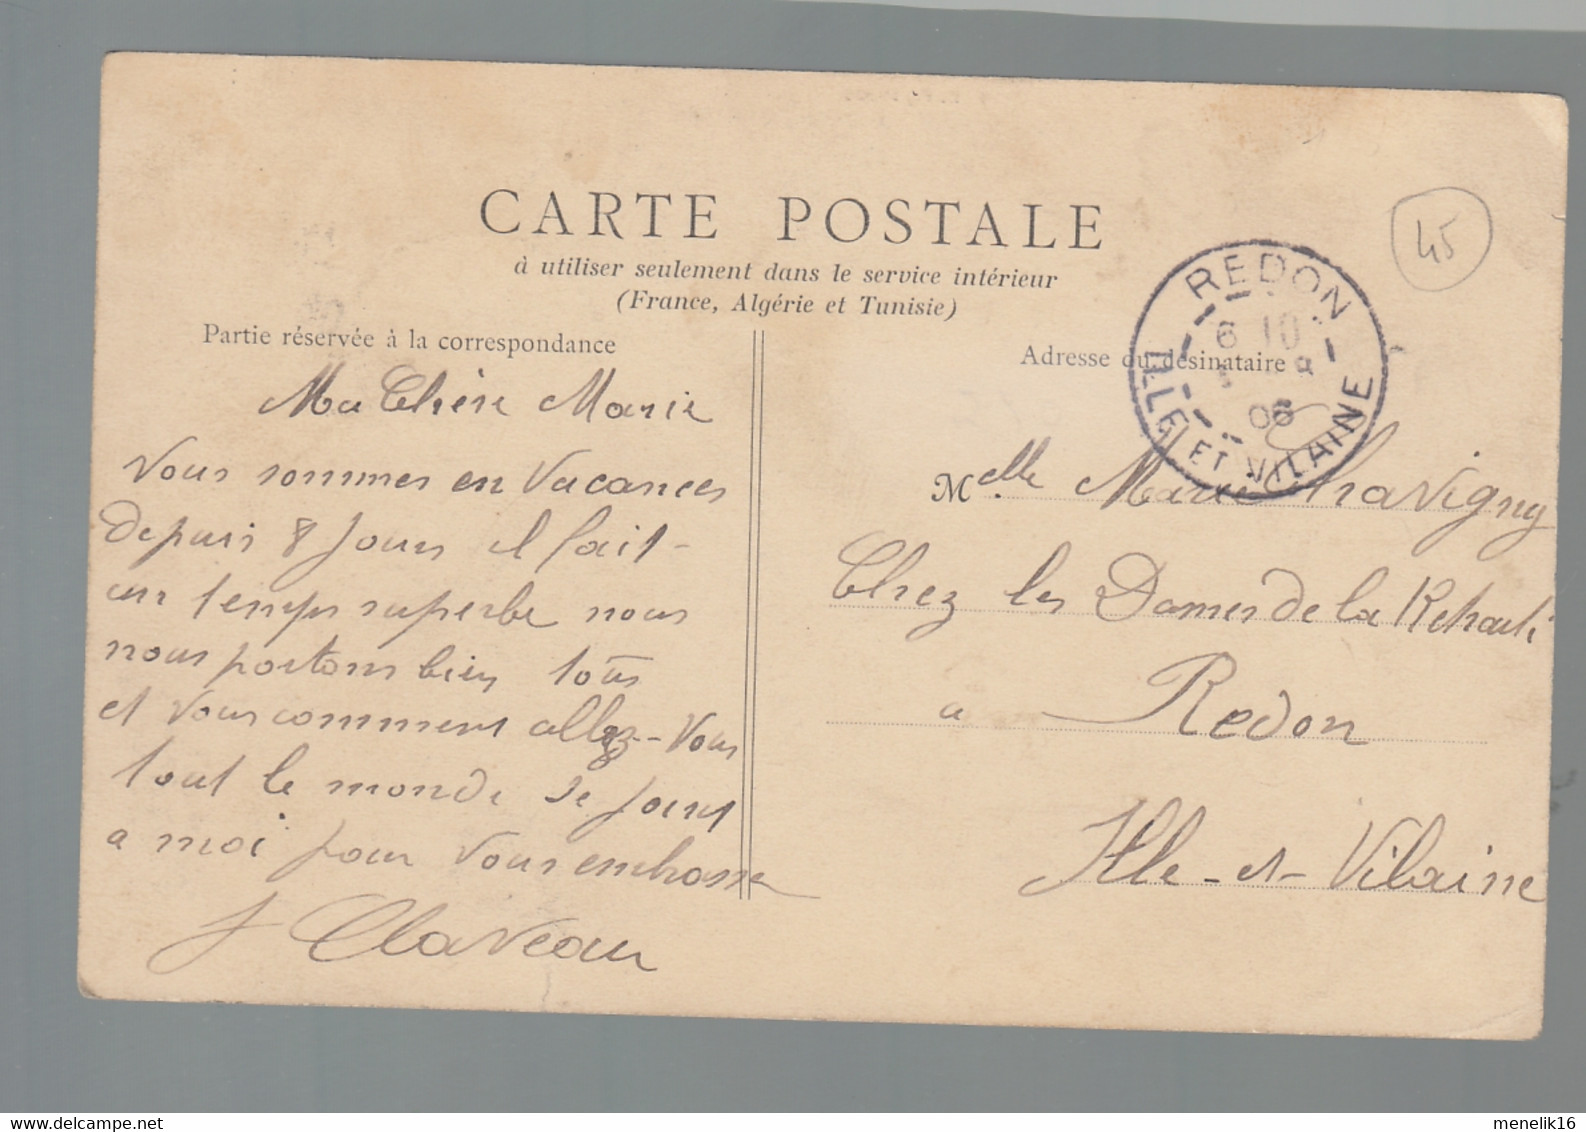 CARTE POSTALE
à utiliser seulement dans le service intérieur
(France, Algérie et Tunisie)
Partie réservée à la correspondance
Ma Chère Marie
Vous sommes en Vacances
depuis 8 jours il fait
un temps superbe nous
nous portons bien tous
et Vous comment allez-Vous
tout le monde se joint
a moi pour Vous embrasser
J Claveau
45
REDON
6 10
06
ILLE ET VILAINE
Adresse du désinataire
Melle Marie Chavigny
Chez les Dames de la
a Redon
Ille-et-Vilaine
www.delcampe.net
menelik16